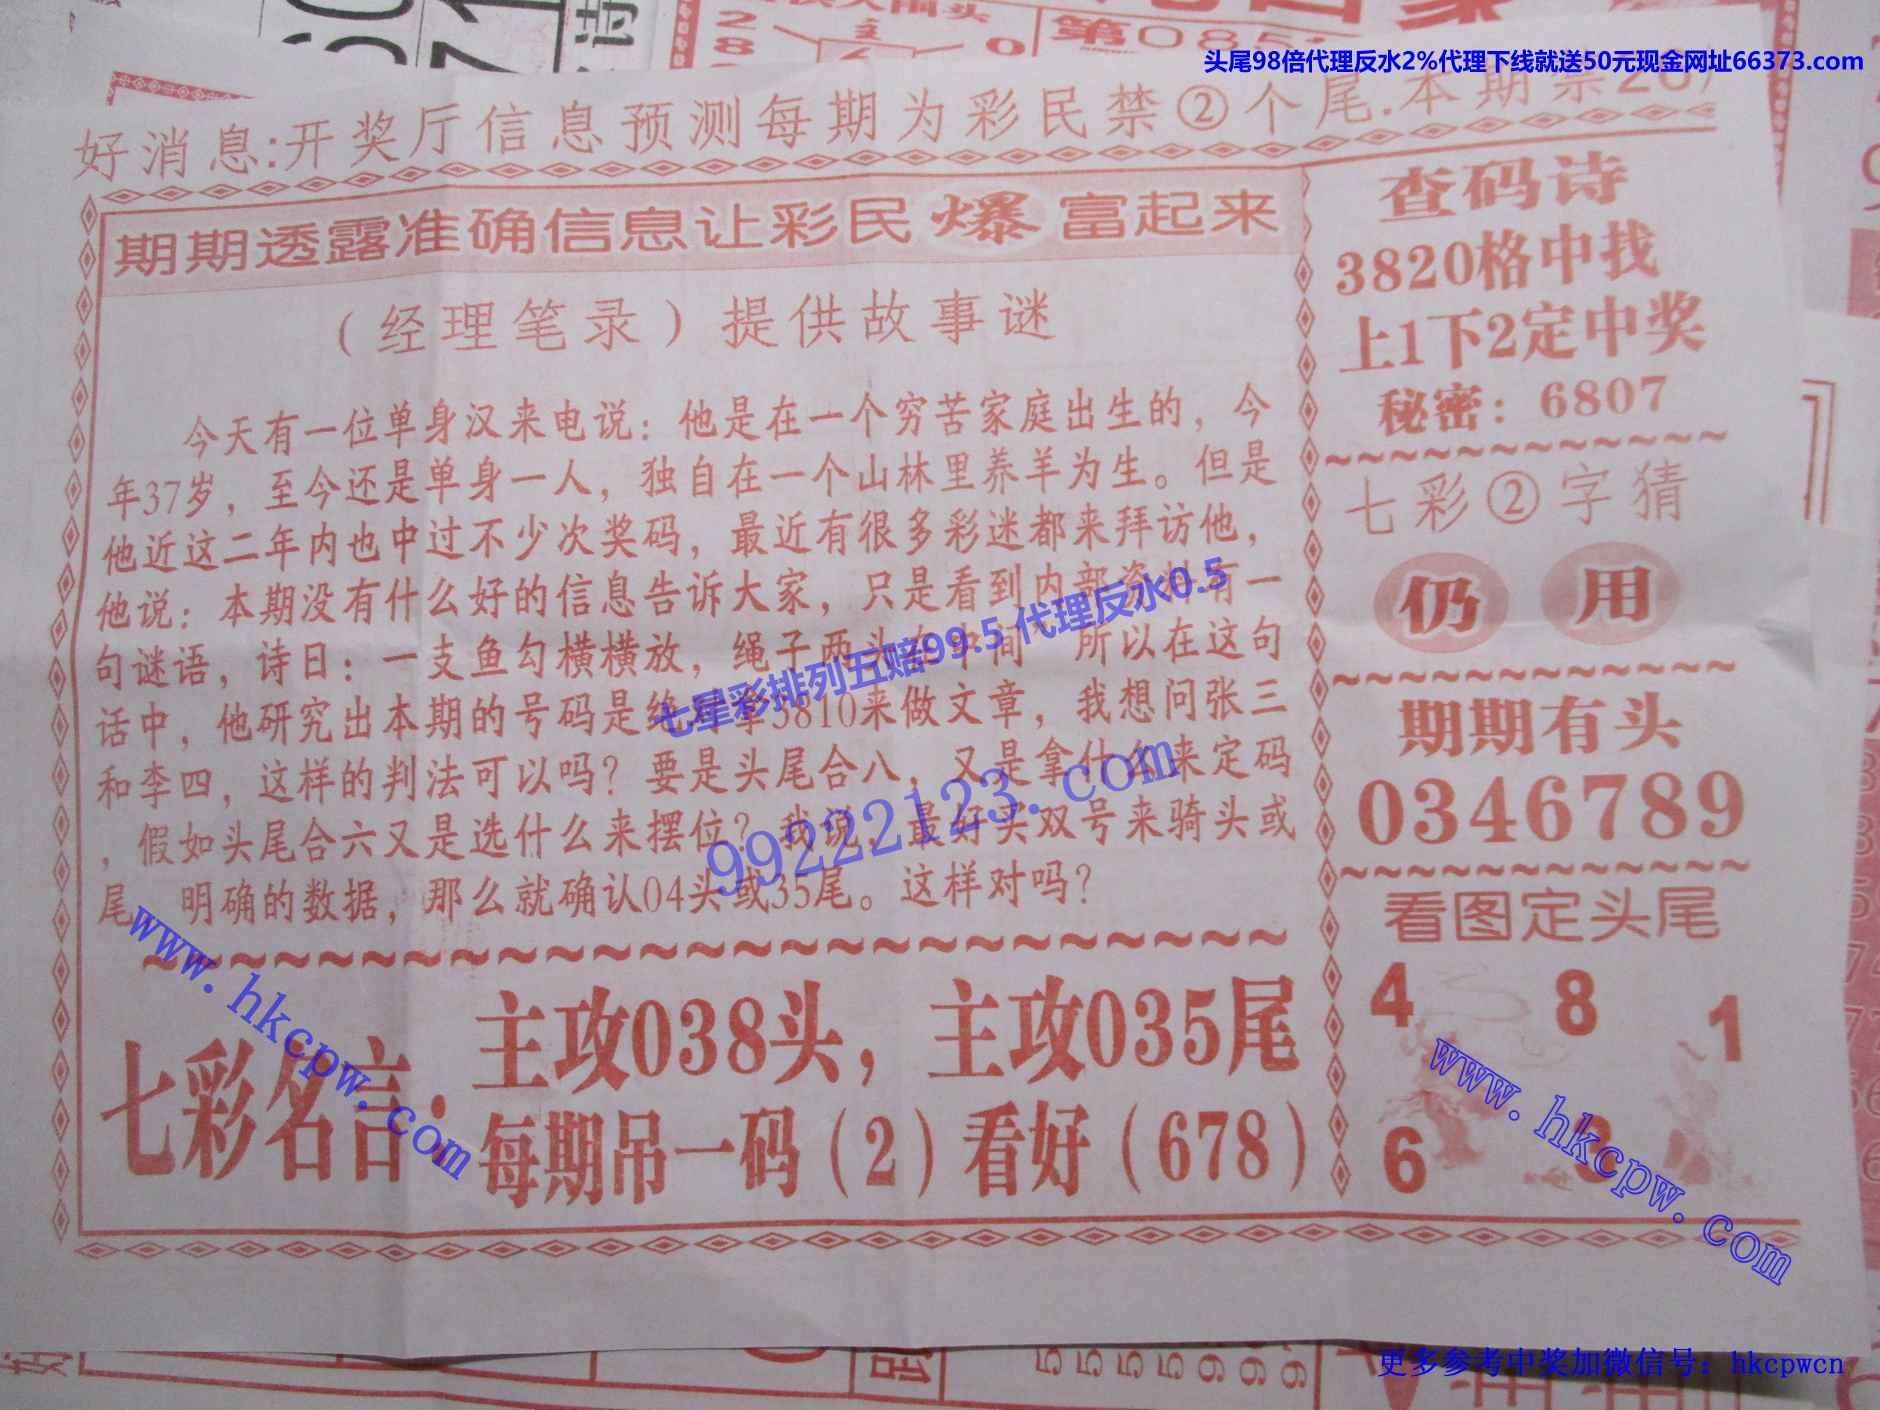 头尾98倍代理反水2%代理下线就送50元现金网址66373.com
第085
好消息:开奖厅信息预测每期为彩民禁②个尾.本期禁20
期期透露准确信息让彩民爆富起来
（经理笔录）提供故事谜
今天有一位单身汉来电说：他是在一个穷苦家庭出生的，今
年37岁，至今还是单身一人，独自在一个山林里养羊为生。但是
他近这二年内也中过不少次奖码，最近有很多彩迷都来拜访他，
他说：本期没有什么好的信息告诉大家，只是看到内部资料有一
句谜语，诗日：一支鱼勾横横放，绳子两头 中间 所以在这句
话中，他研究出本期的号码是绝 拿3810来做文章，我想问张三
和李四，这样的判法可以吗？要是头尾合八，又是拿什么来定码
，假如头尾合六又是选什么来摆位？我说，最好买双号来骑头或
尾 明确的数据，那么就确认04头或35尾。这样对吗？
七彩名言:
主攻038头，主攻035尾
每期吊一码（2）看好（678）
查码诗
3820格中找
上1下2定中奖
秘密：6807
七彩②字猜
仍 用
期期有头
0346789
看图定头尾
4 8 1
6
七星彩排列五赔99.5 代理反水0.5
99222123.com
www.hkcpw.com
www.hkcpw.com
更多参考中奖加微信号：hkcpwcn